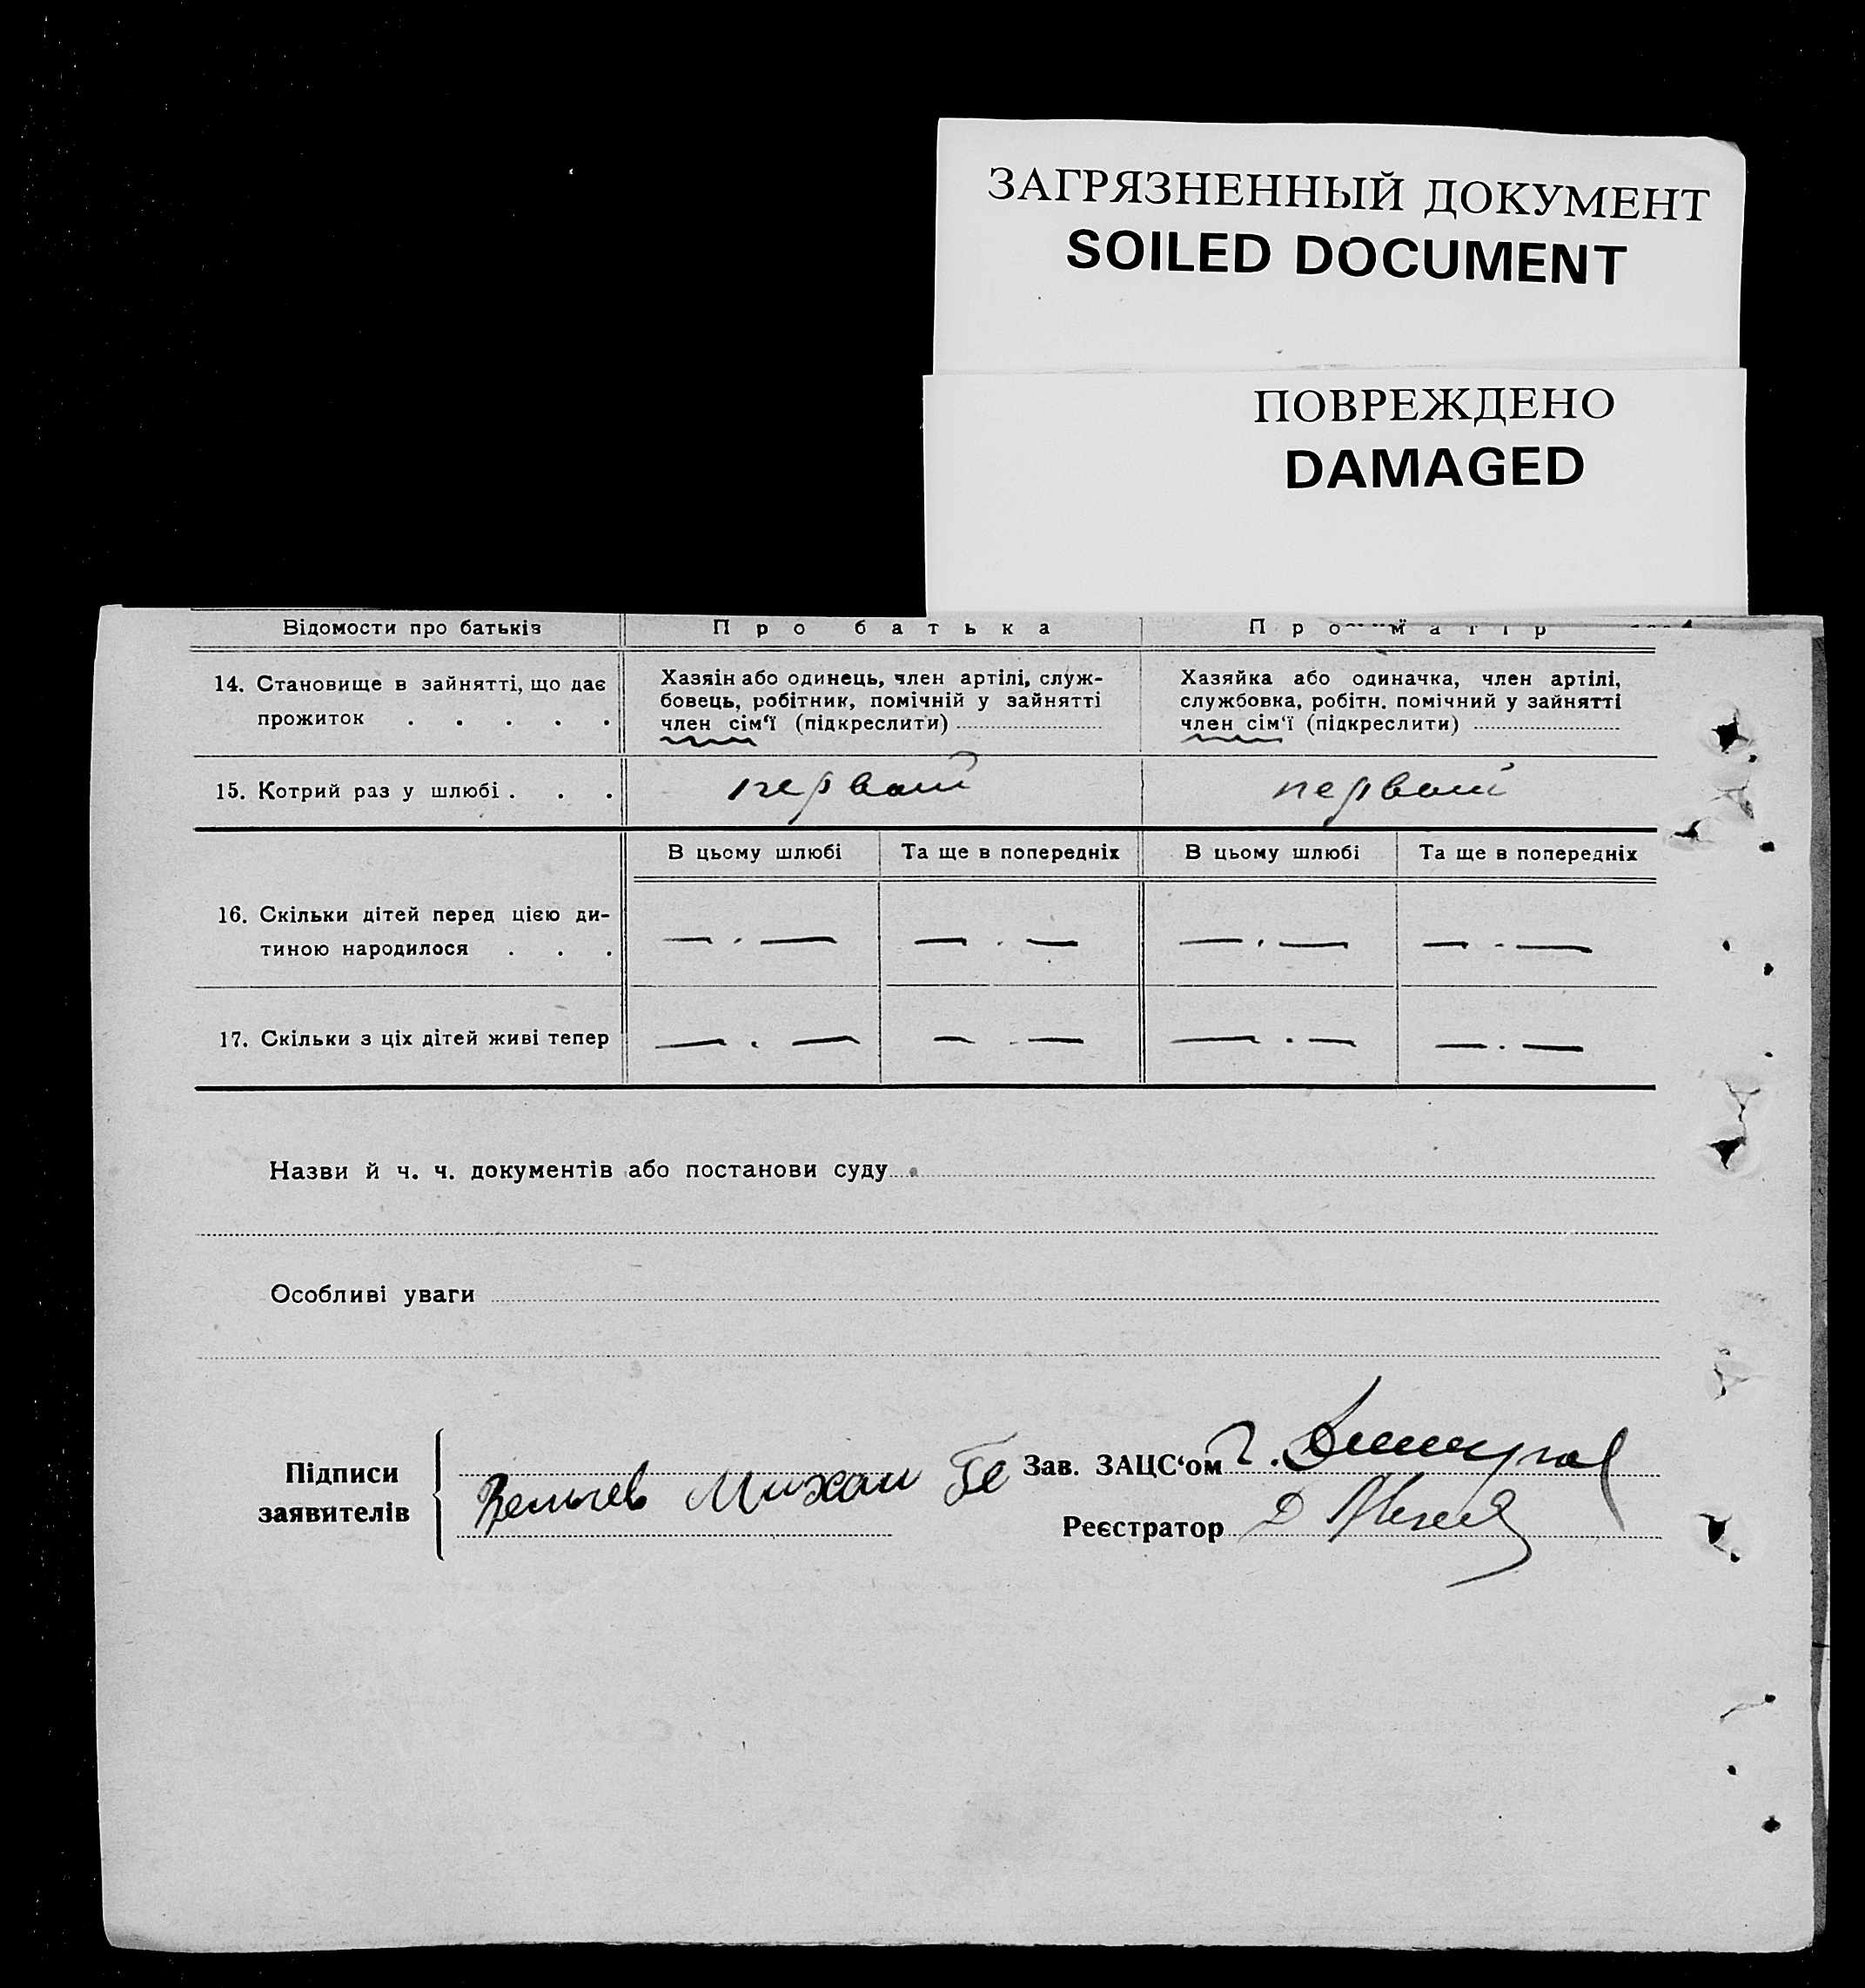 ЗАГРЯЗНЕННЫЙ ДОКУМЕНТ
SOILED DOCUMENT
ПОВРЕЖДЕНО
DAMAGED
Відомости про батьків Про батька Про матір
14. Становище в зайнятті, що дає прожиток . . . . .
Хазяін або одинець, член артілі, служ-
бовець, робітник, помічній у зайнятті
член сім‘ї (підкреслити)
Хазяйка або одиначка, член артілі,
службовка, робітн. помічний у зайнятті
член сім‘ї (підкреслити)
15. Котрий раз у шлюбі . . . первый первый
В цьому шлюбі Та ще в попередніх В цьому шлюбі Та ще в попередніх
16. Скільки дітей перед цією ди-
тиною народилося . . . — . — — . — — . — — . —
17. Скільки з ціх дітей живі тепер — . — — . — — . — — . —
Назви й ч. ч. документів або постанови суду
Особливі уваги
Підписи
заявителів
Михаил
Зав. ЗАЦС‘ом
Реєстратор